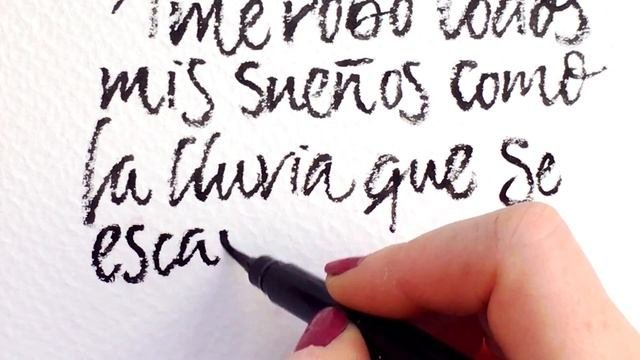 me robó todos
mis sueños como
la lluvia que se
esca